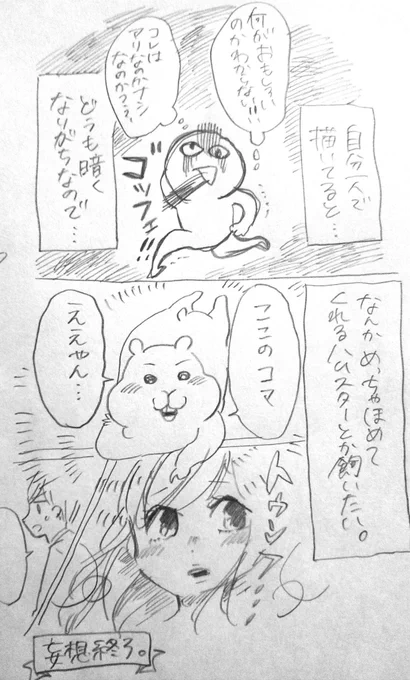 自分一人で
描いてると…
何がおもしろい
のかわからない…
コレは
アリなのかナシ
なのかっ??
ゴッフェ!!
どうも暗く
なりがちなので…
なんかめっちゃほめて
くれるハムスターとか飼いたい。
ここのコマ
ええやん…
トゥンク
妄想終了。